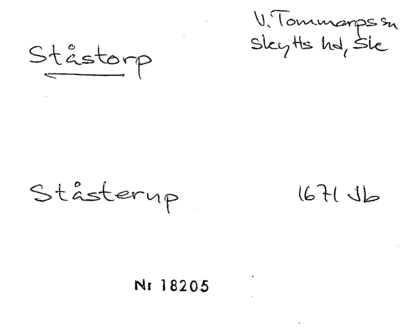 Ståstorp
V. Tommarps sn
Skytts hd, Sk
Ståsterup
1671 Jb
Nr 18205